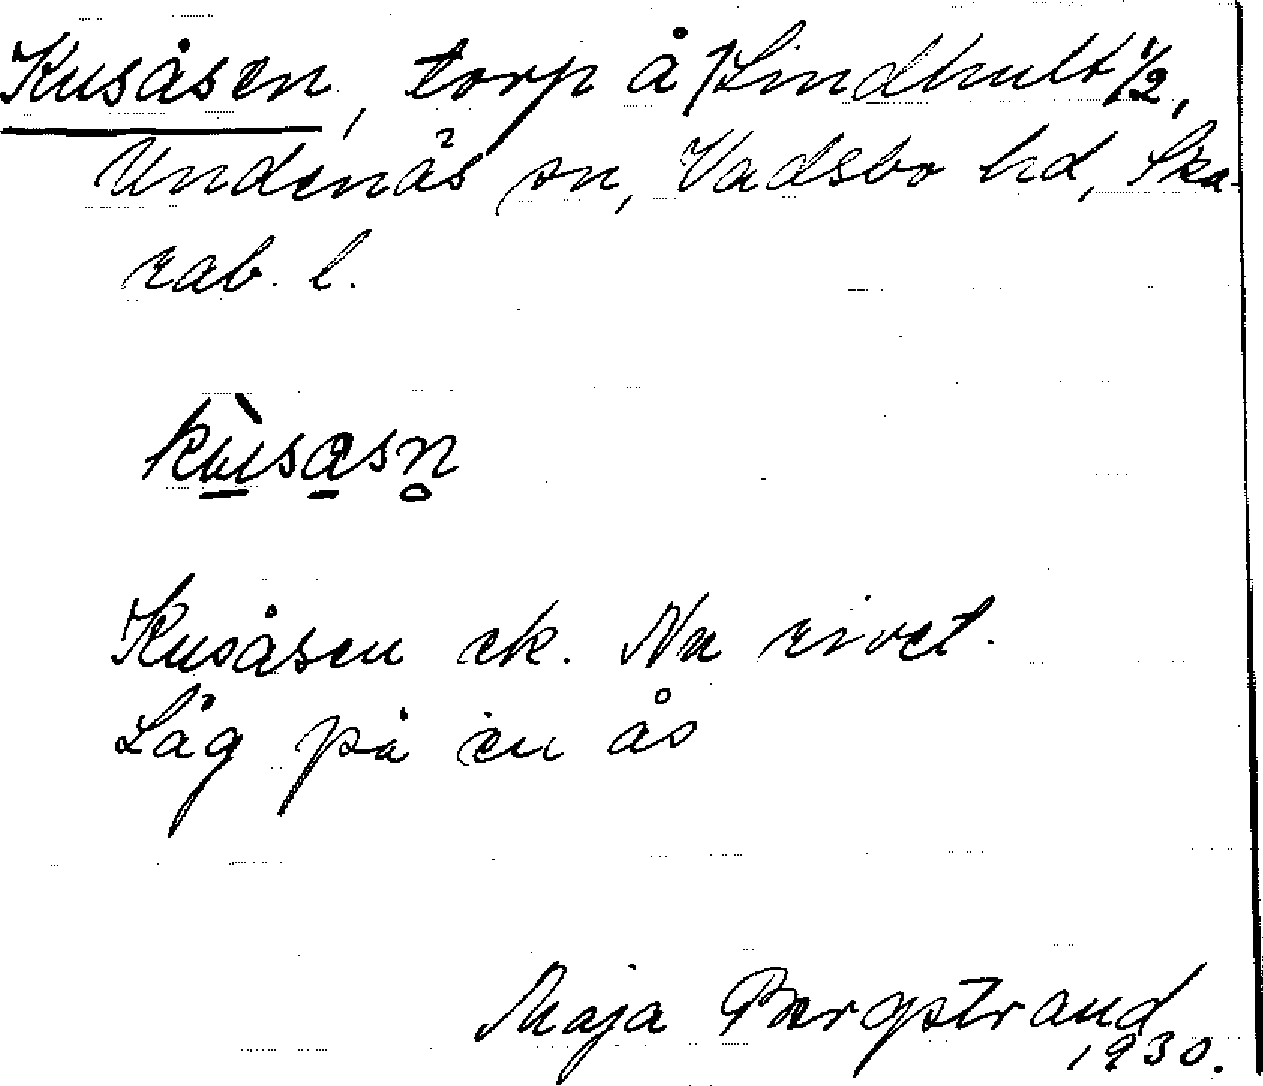 Kusåsen, torp å Lindhult 1/2,
Undenäs sn, Vadsbo hd, Ska-
rab. l.
kùsasn̥
Kusåsen ek. Nu rivet.
Låg på en ås
Maja Bergstrand
1930.